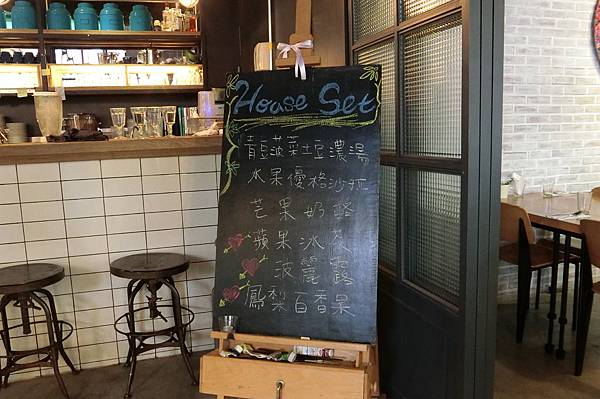 House Set
菠菜土豆濃湯
水果優格沙拉
芒果奶酪
蘋果冰茶
波麗露
鳳梨百香果